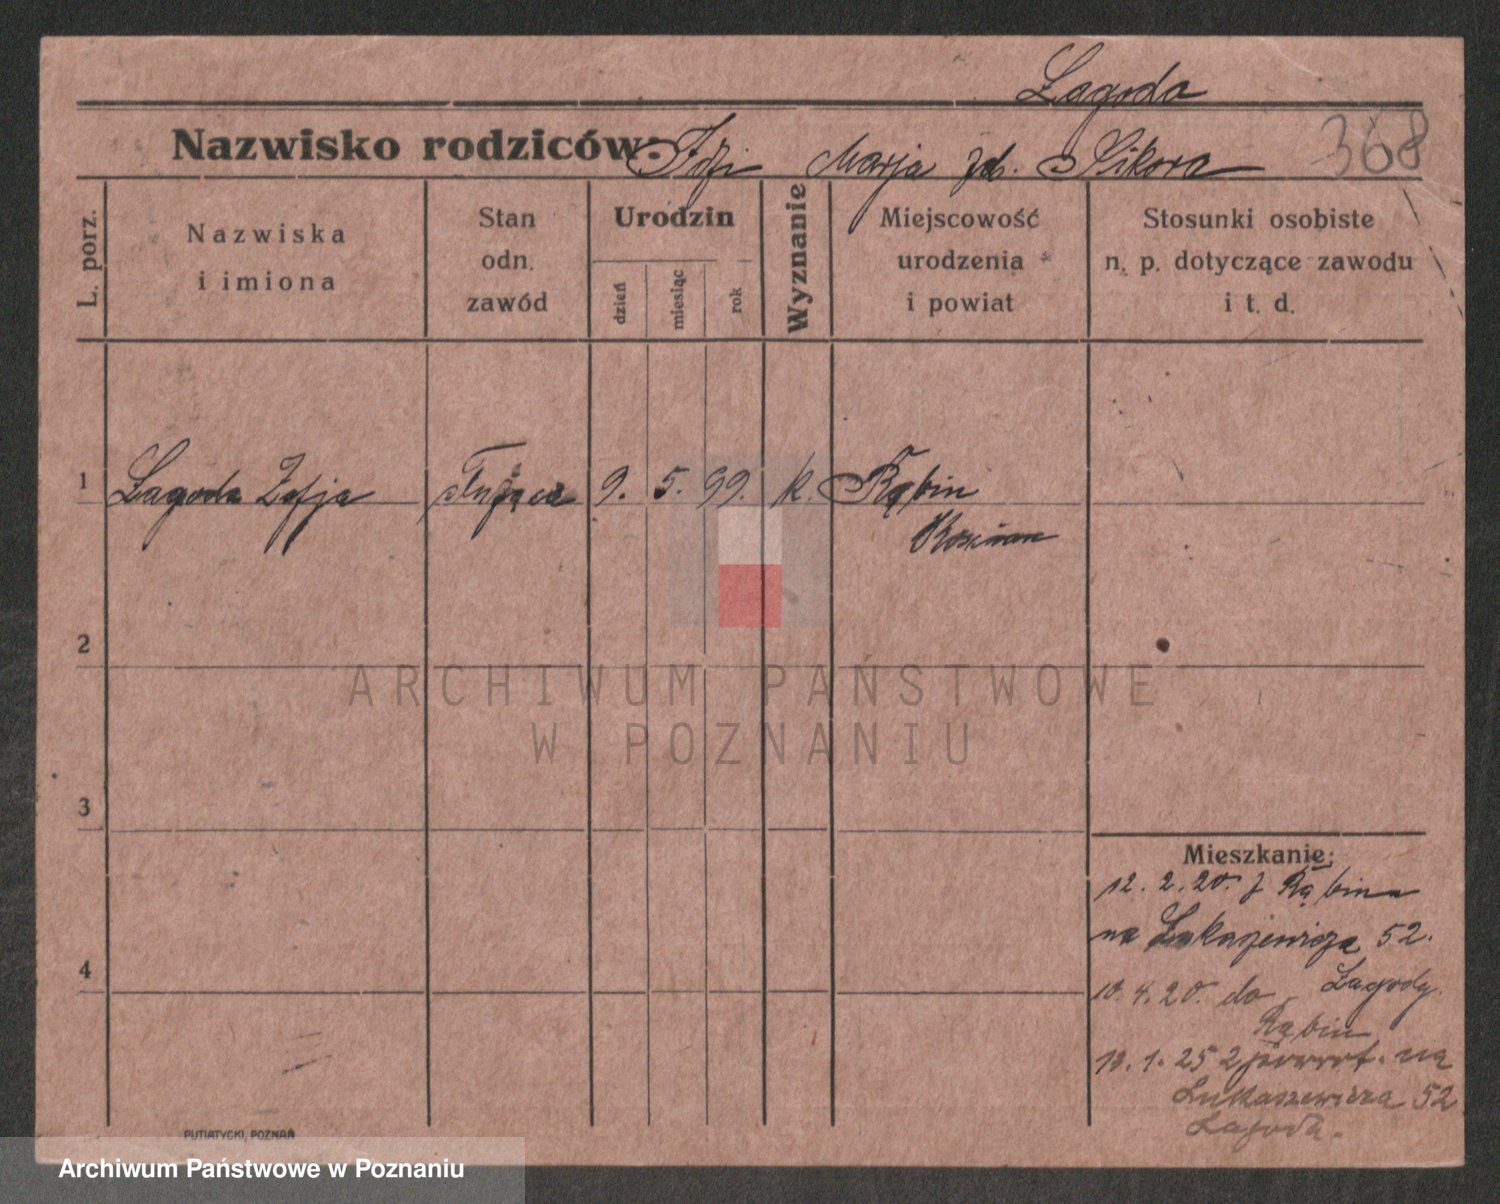 Łagoda
Nazwisko rodziców: Idzi Marja zd. Sikora 368
L. porz.
Nazwiska
i imiona
Stan
odn.
zawód
Urodzin
dzień
miesiąc
rok
Wyznanie
Miejscowość
urodzenia
i powiat
Stosunki osobiste
n. p. dotyczące zawodu
i t. d.
1 Łagoda Zofja Służąca 9. 5. 99. k. Rąbin
Kościan
2
3
4
Mieszkanie:
12. 2. 20. z Rąbina
na Łukaszewicza 52.
Łagody.
10. 4. 20. do
Rąbin
10. 1. 25 z powrot. na
Łukaszewicza 52
Łagoda.
PUTIATYCKI, POZNAŃ
ARCHIWUM PAŃSTWOWE
W POZNANIU
Archiwum Państwowe w Poznaniu